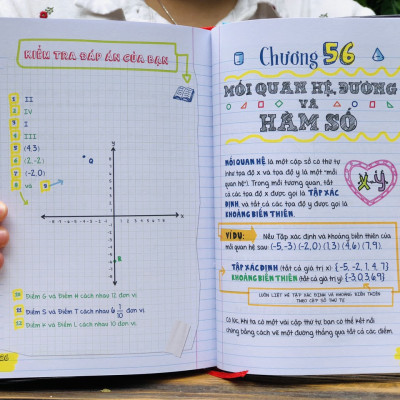 KIỂM TRA ĐÁP ÁN CỦA BẠN
1 II
2 IV
3 I
4 III
5 (4,3)
6 (2,-2)
7 (-2,0)
8 và 9
Q
R
y
x
10 Điểm G và Điểm H cách nhau 12 đơn vị.
11 Điểm S và Điểm T cách nhau 6 1/10 đơn vị.
12 Điểm K và Điểm L cách nhau 10 đơn vị.
Chương 56
MỐI QUAN HỆ, ĐƯỜNG
VÀ
HÀM SỐ
MỐI QUAN HỆ là một cặp số có thứ tự
(như tọa độ x và tọa độ y là một "mối
quan hệ"). Trong mối tương quan, tất
cả các tọa độ x được gọi là TẬP XÁC
ĐỊNH và tất cả các tọa độ y được gọi là
KHOẢNG BIẾN THIÊN.
x, y
VÍ DỤ: Nêu Tập xác định và khoảng biến thiên của
mối quan hệ sau: (-5,-3) (-2,0) (1,3) (4,6) (7,9).
TẬP XÁC ĐỊNH (tất cả giá trị x): {-5, -2, 1, 4, 7}
KHOẢNG BIẾN THIÊN (tất cả giá trị y): {-3,0,3,6,9}
LUÔN LIỆT KÊ TẬP XÁC ĐỊNH VÀ KHOẢNG BIẾN THIÊN
THEO CẶP SỐ THỨ TỰ
Có lúc, khi ta có một vài cặp thứ tự, bạn có thể kết nối
chúng bằng cách vẽ một đường thẳng qua tất cả các điểm.